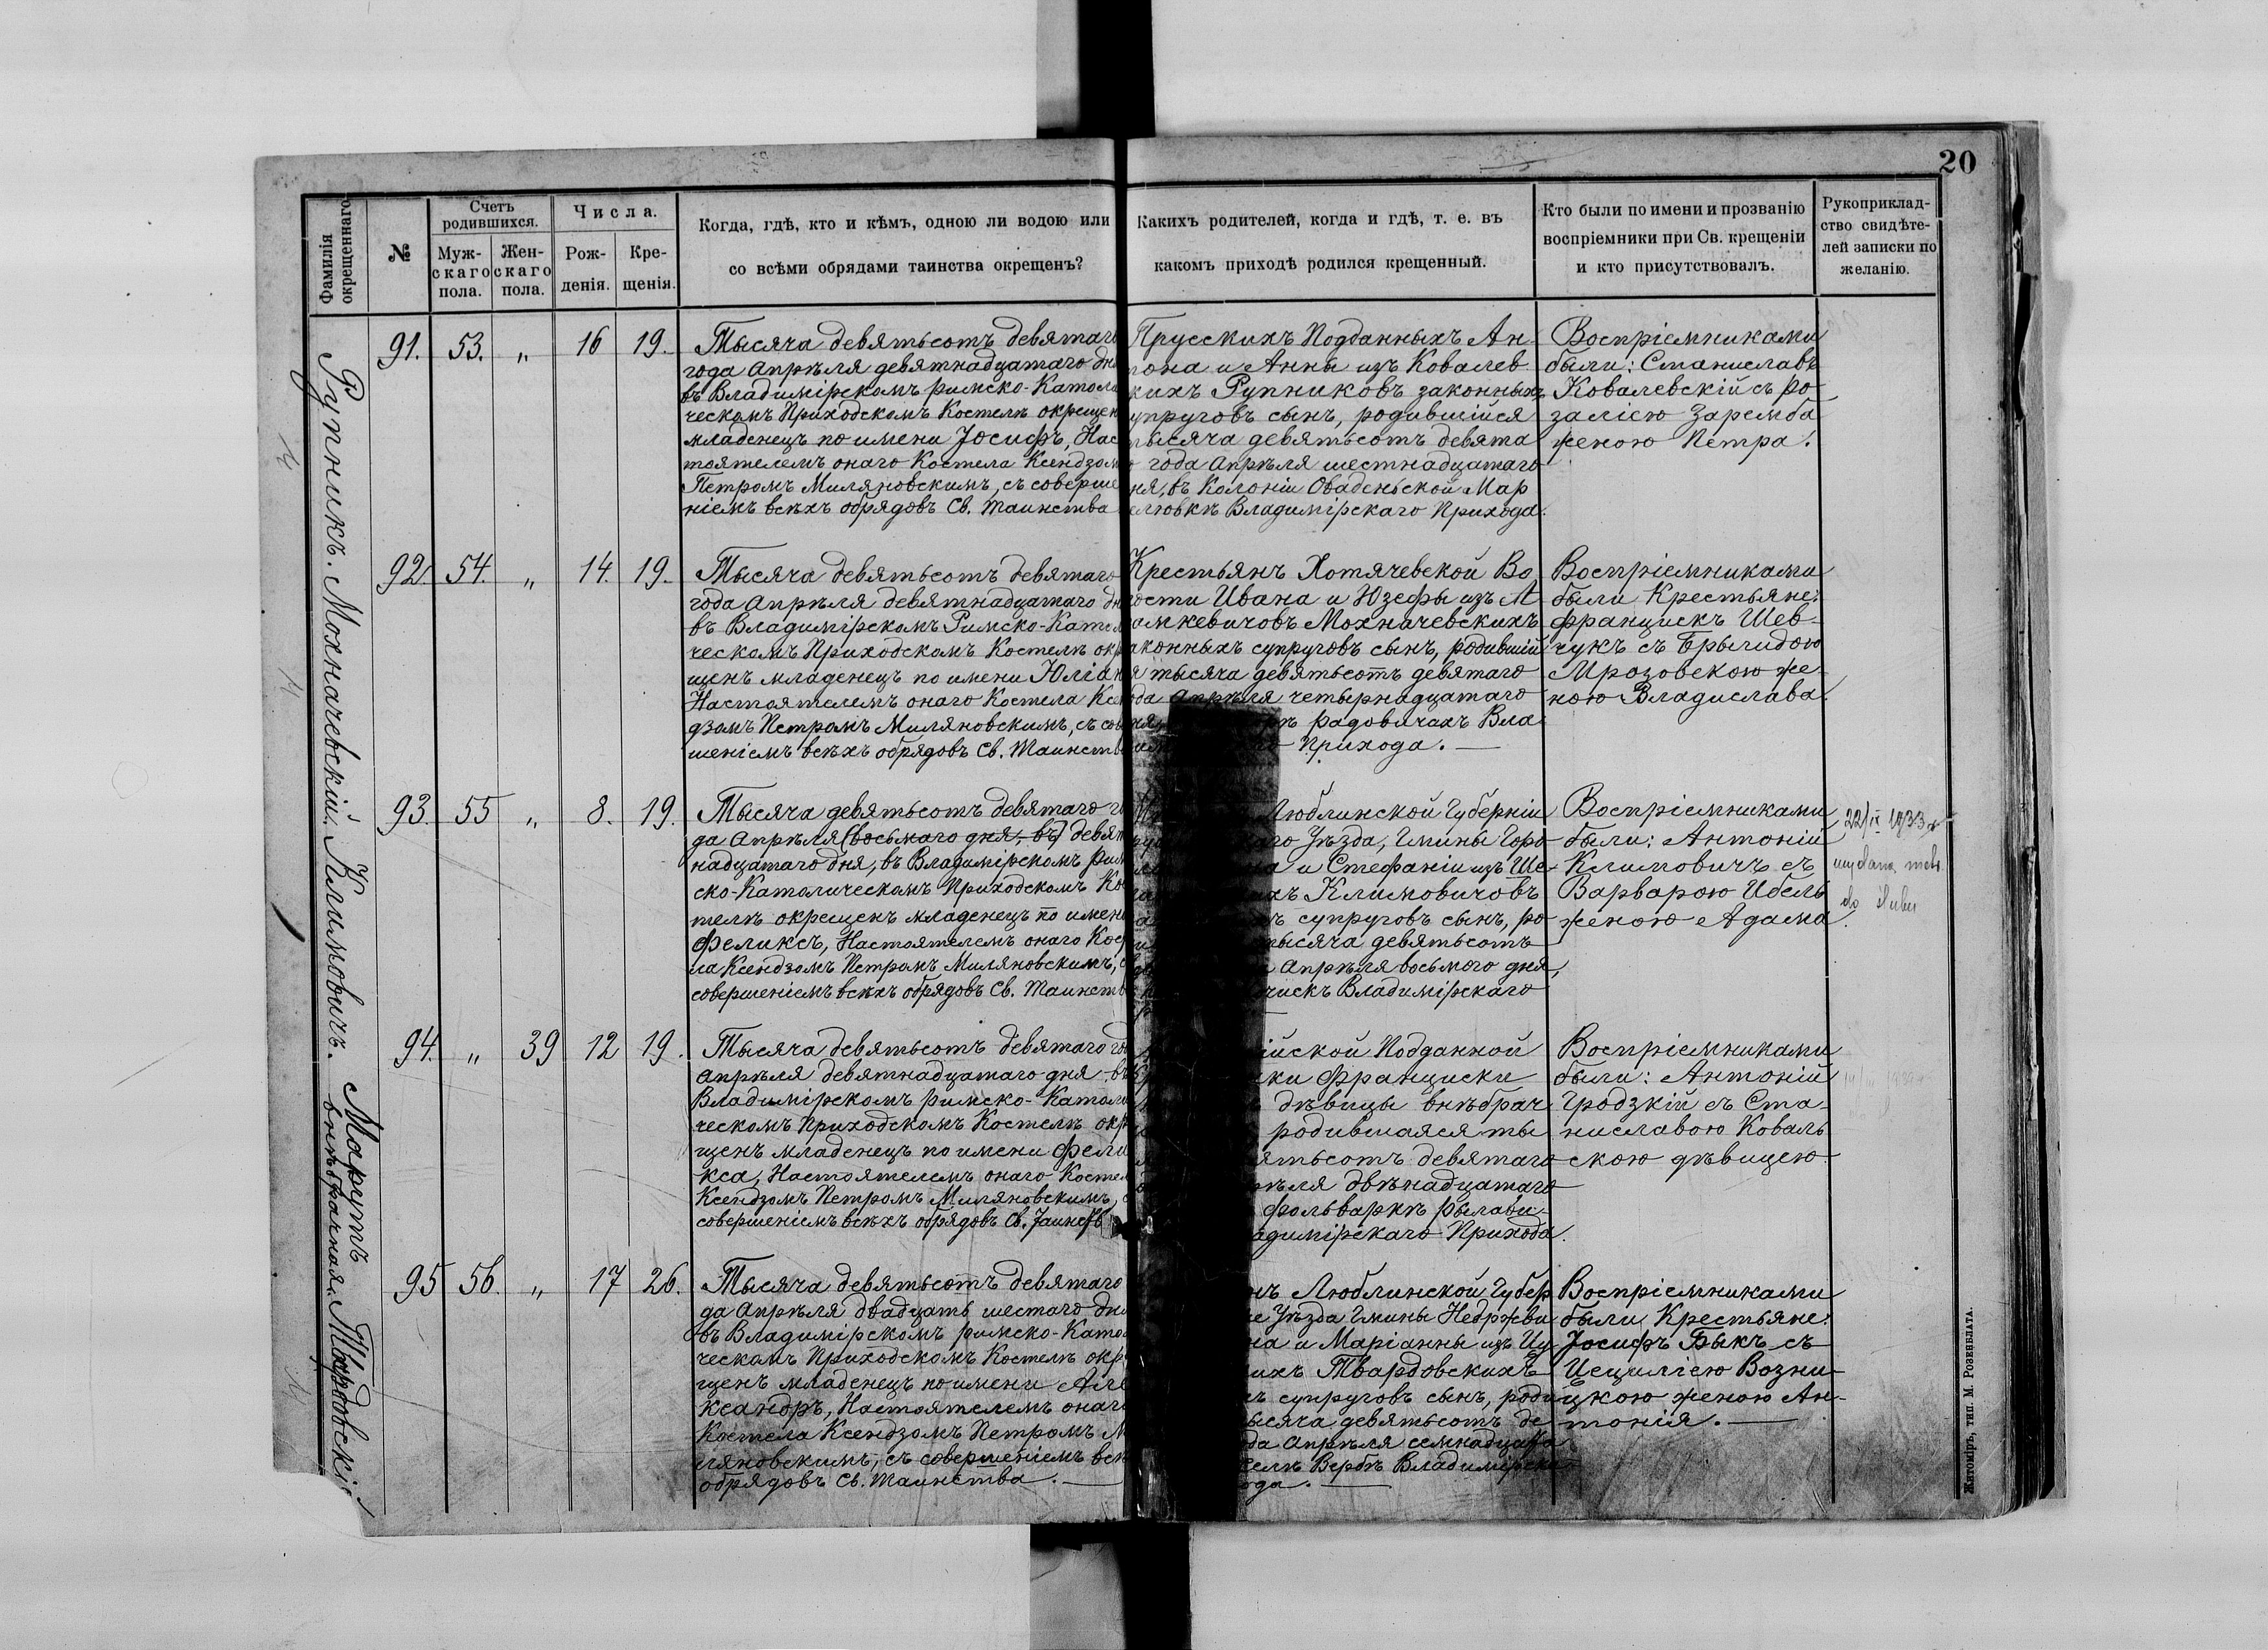 20
Фамилія окрещеннаго
№
Счетъ родившихся.
Муж-
скаго
пола.
Жен-
скаго
пола.
Числа.
Рож-
денія.
Кре-
щенія.
Когда, гдѣ, кто и кѣмъ, одною ли водою или
со всѣми обрядами таинства окрещенъ?
Какихъ родителей, когда и гдѣ, т. е. въ
какомъ приходѣ родился крещенный.
Кто были по имени и прозванію
воспріемники при Св. крещеніи
и кто присутствовалъ.
Рукоприклад-
ство свидѣте-
лей записки по
желанію.
Рупникъ.
91. 53. „ 16 19.
Тысяча девятьсотъ девятаго
года Апрѣля девятнадцатаго дн
въ Владимірскомъ римско-Католи
ческомъ Приходскомъ Костелѣ окрещен
младенецъ по имени Іосифъ, Нас
тоятелемъ онаго Костела Ксендзом
Петромъ Миляновскимъ, съ соверше
ніемъ всѣхъ обрядовъ Св. Таинства
Прусскихъ Подданныхъ Ан
тона и Анны изъ Ковалев
кихъ Рупниковъ законныхъ
упруговъ сынъ, родившійся
тысяча девятьсотъ девята
года Апрѣля шестнадцатаго
ня, въ Колоніи Оваденьской Мар
елювкѣ Владимірскаго Прихода.
Воспріемниками
были: Станиславъ
Ковалевскій съ Ро-
заліею Заремба
женою Петра.
Мохначевскій.
92. 54. „ 14. 19.
Тысяча девятьсотъ девятаго
года Апрѣля девятнадцатаго дн
въ Владимірскомъ Римско-Катол
ческомъ Приходскомъ Костелѣ окр
щенъ младенецъ по имени Юліан
Настоятелемъ онаго Костела Ксен
дзомъ Петромъ Миляновскимъ, съ сов
шеніемъ всѣхъ обрядовъ Св. Таинств
Крестьянъ Хотячевской Во
ости Ивана и Юзефы изъ М
омкевичовъ Мохначевскихъ
аконныхъ супруговъ сынъ, родившій
я тысяча девятьсотъ девятаго
ода Апрѣля четырнадцатаго
рѣ Радовичахъ Вла
го Прихода.
Воспріемниками
были Крестьяне:
Францискъ Шев-
чукъ съ Брыгидою
Мрозовскою же-
ною Владислава.
Климовичъ.
93. 55 „ 8. 19.
Тысяча девятьсотъ девятаго го
да Апрѣля (восьмаго дня, въ) девят
надцатаго дня, въ Владимірскомъ Рим
ско-Католическомъ Приходскомъ Ко
телѣ окрещенъ младенецъ по имен
Феликсъ, Настоятелемъ онаго Кос
ла Ксендзомъ Петромъ Миляновскимъ, с
совершеніемъ всѣхъ обрядовъ Св. Таинств
Люблинской Губерніи
го Уѣзда, Гмины Горо-
на и Стефаніи изъ Ше-
хъ Климовичовъ
ъ супруговъ сынъ, ро-
тысяча девятьсотъ
Апрѣля восьмого дня,
чискъ Владимірскаго
Воспріемниками
были: Антоній
Климовичъ съ
Варварою Ибель
женою Адама.
22/IX 1933 r
wydana metr.
do ślubu
Маритъ
внѣбрачная.
94. „ 39 12 19.
Тысяча девятьсотъ девятаго го
Апрѣля девятнадцатаго дня въ
Владимірскомъ Римско-Катол
ческомъ Приходскомъ Костелѣ окр
щенъ младенецъ по имени Фели
кса, Настоятелемъ онаго Костел
Ксендзомъ Петромъ Миляновскимъ, с
совершеніемъ всѣхъ обрядовъ Св. Таинств
ійской Подданной
ки Франциски
дѣвицы внѣбрач
родившаяся ты
ятьсотъ девятаго
рѣля двѣнадцатаго
фольваркѣ Рылави-
адимірскаго Прихода.
Воспріемниками
были: Антоній
Гродзкій съ Ста-
ниславою Коваль
скою дѣвицею.
Твардовскій
95 56. „ 17 26.
Тысяча девятьсотъ девятаго
да Апрѣля двадцать шестаго дн
въ Владимірскомъ римско-Като
ческомъ Приходскомъ Костелѣ окр
щенъ младенецъ по имени Але
ксандръ, Настоятелемъ онаг
Костела Ксендзомъ Петромъ М
ляновскимъ, съ совершеніемъ всѣ
обрядовъ Св. Таинства.
нъ Люблинской Губер
е Уѣзда Гмины Недржви
на и Маріанны изъ Цу
ихъ Твардовскихъ
ъ супруговъ сынъ, роди
ысяча девятьсотъ де
да Апрѣля семнадцата
селѣ Вербѣ Владимірска
ода.
Воспріемниками
были Крестьяне:
Іосифъ Быкъ съ
Цециліею Возни-
цкою женою Ан-
тонія.
Житоміръ, тип. М. Розенблата.